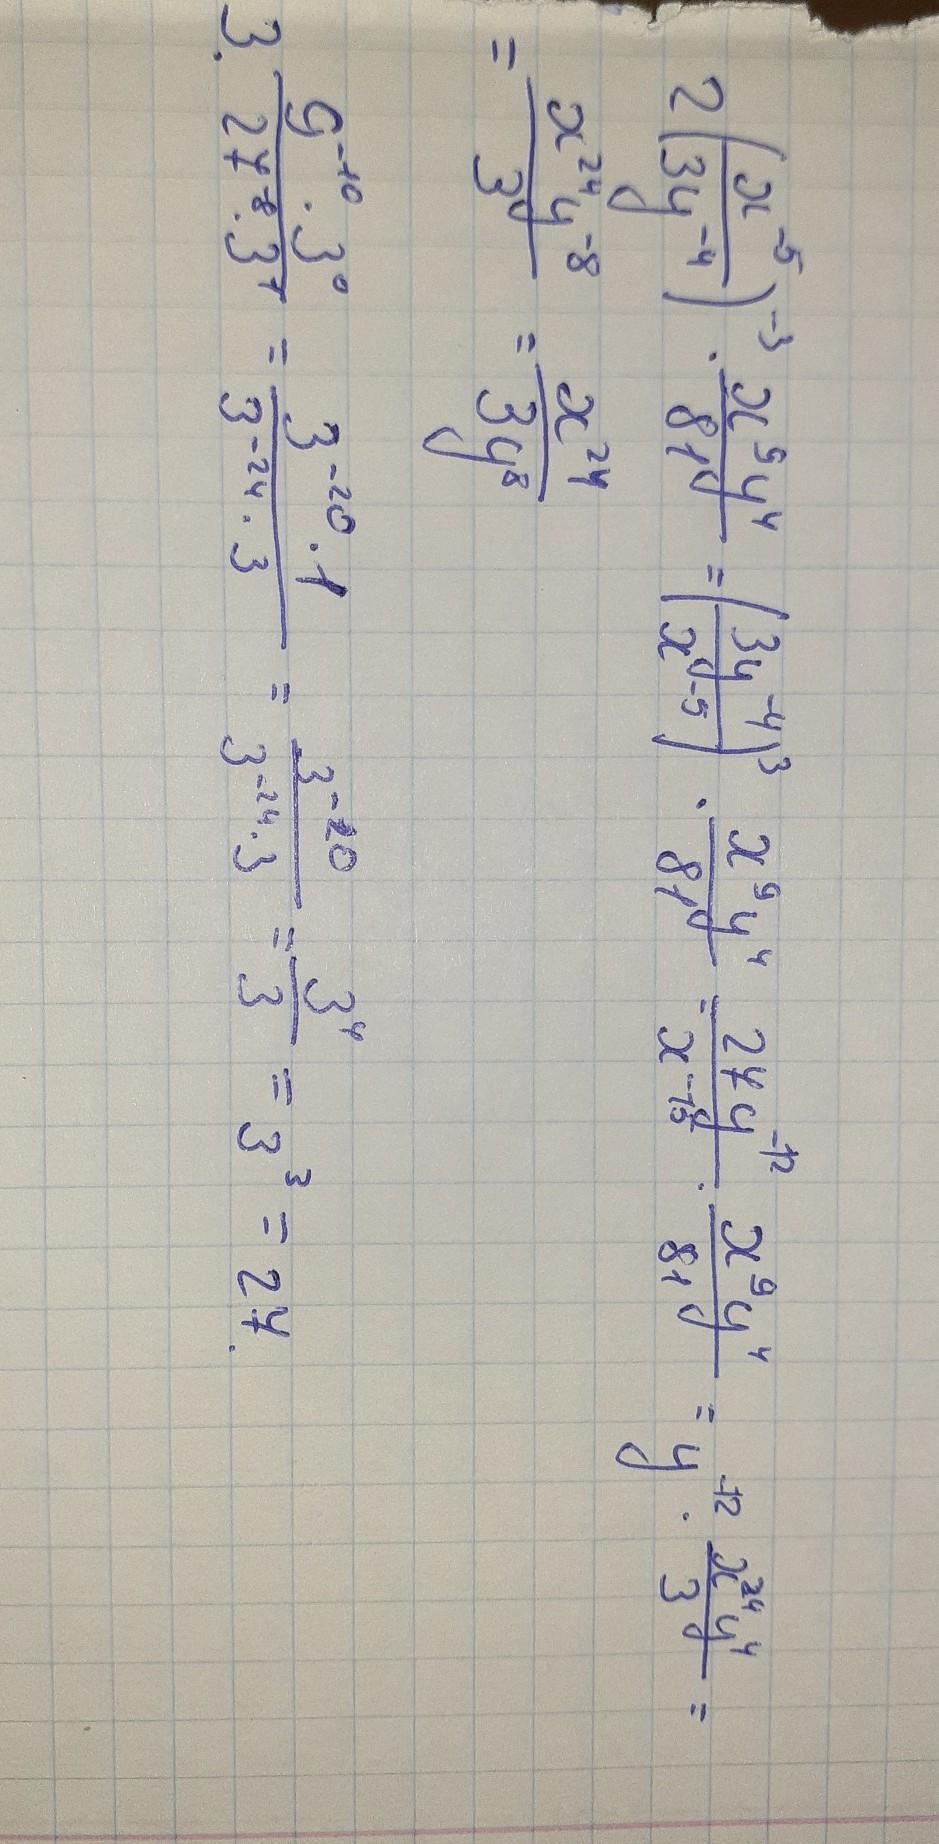 2 (x^-5 / 3y^-4)^-3 · x^9y^4 / 81 = (3y^-4 / x^-5)^3 · x^9y^4 / 81 = 27y^-12 / x^-15 · x^9y^4 / 81 = y^-12 · x^24y^4 / 3 =
= x^24y^-8 / 3 = x^24 / 3y^8
3. 9^-10 · 3^0 / 27^-8 · 3^1 = 3^-20 · 1 / 3^-24 · 3 = 3^-20 / 3^-24 · 3 = 3^4 / 3 = 3^3 = 27.